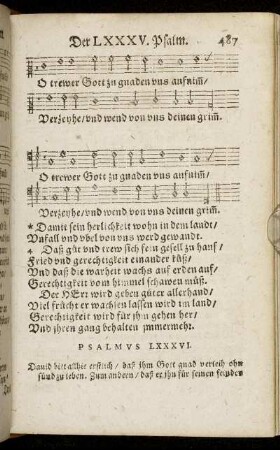 Der LXXXV. Psalm. 487
O trewer Gott zu gnaden vns aufnim̃/
Verzeyhe/vnd wend von vns deinen grim̃.
O trewer Gott zu gnaden vns aufnim̃/
Verzeyhe/vnd wend von vns deinen grim̃.
* Damit sein herligkeit wohn in dem landt/
Vnfall vnd vbel von vns werd gewandt.
+ Daß güt vnd trew sich sein gesell zu hauf/
Fried vnd gerechtigkeit einander küß/
Vnd daß die warheit wachs auf erden auf/
Gerechtigkeit vom himmel schawen müß.
Der HErr wird geben güter allerhand/
Viel frücht er wachsen lassen wird im land/
Gerechtigkeit wird für jhm gehen her/
Vnd jhren gang behalten jmmermehr.
PSALMVS LXXXVI.
Dauid bitt allhie erstlich/ daß jhm Gott gnad verleih ohn
sünd zu leben. Zum andern/ daß er jhn für seinen feinden